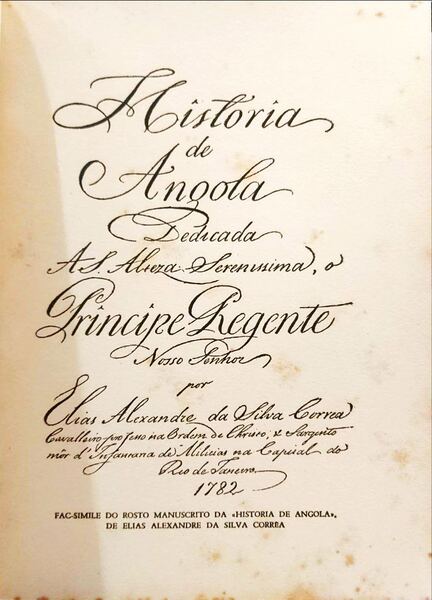 Historia
de
Angola
Dedicada
A S. Alteza Serenissima, o
Principe Regente
Nosso Senhor
por
Elias Alexandre da Silva Correa
Cavalleiro professo na Ordem de Christo; & Sargento
mór d'Infantaria de Milicias na Capital do
Rio de Janeiro.
1782
FAC-SIMILE DO ROSTO MANUSCRITO DA «HISTORIA DE ANGOLA»,
DE ELIAS ALEXANDRE DA SILVA CORRÊA